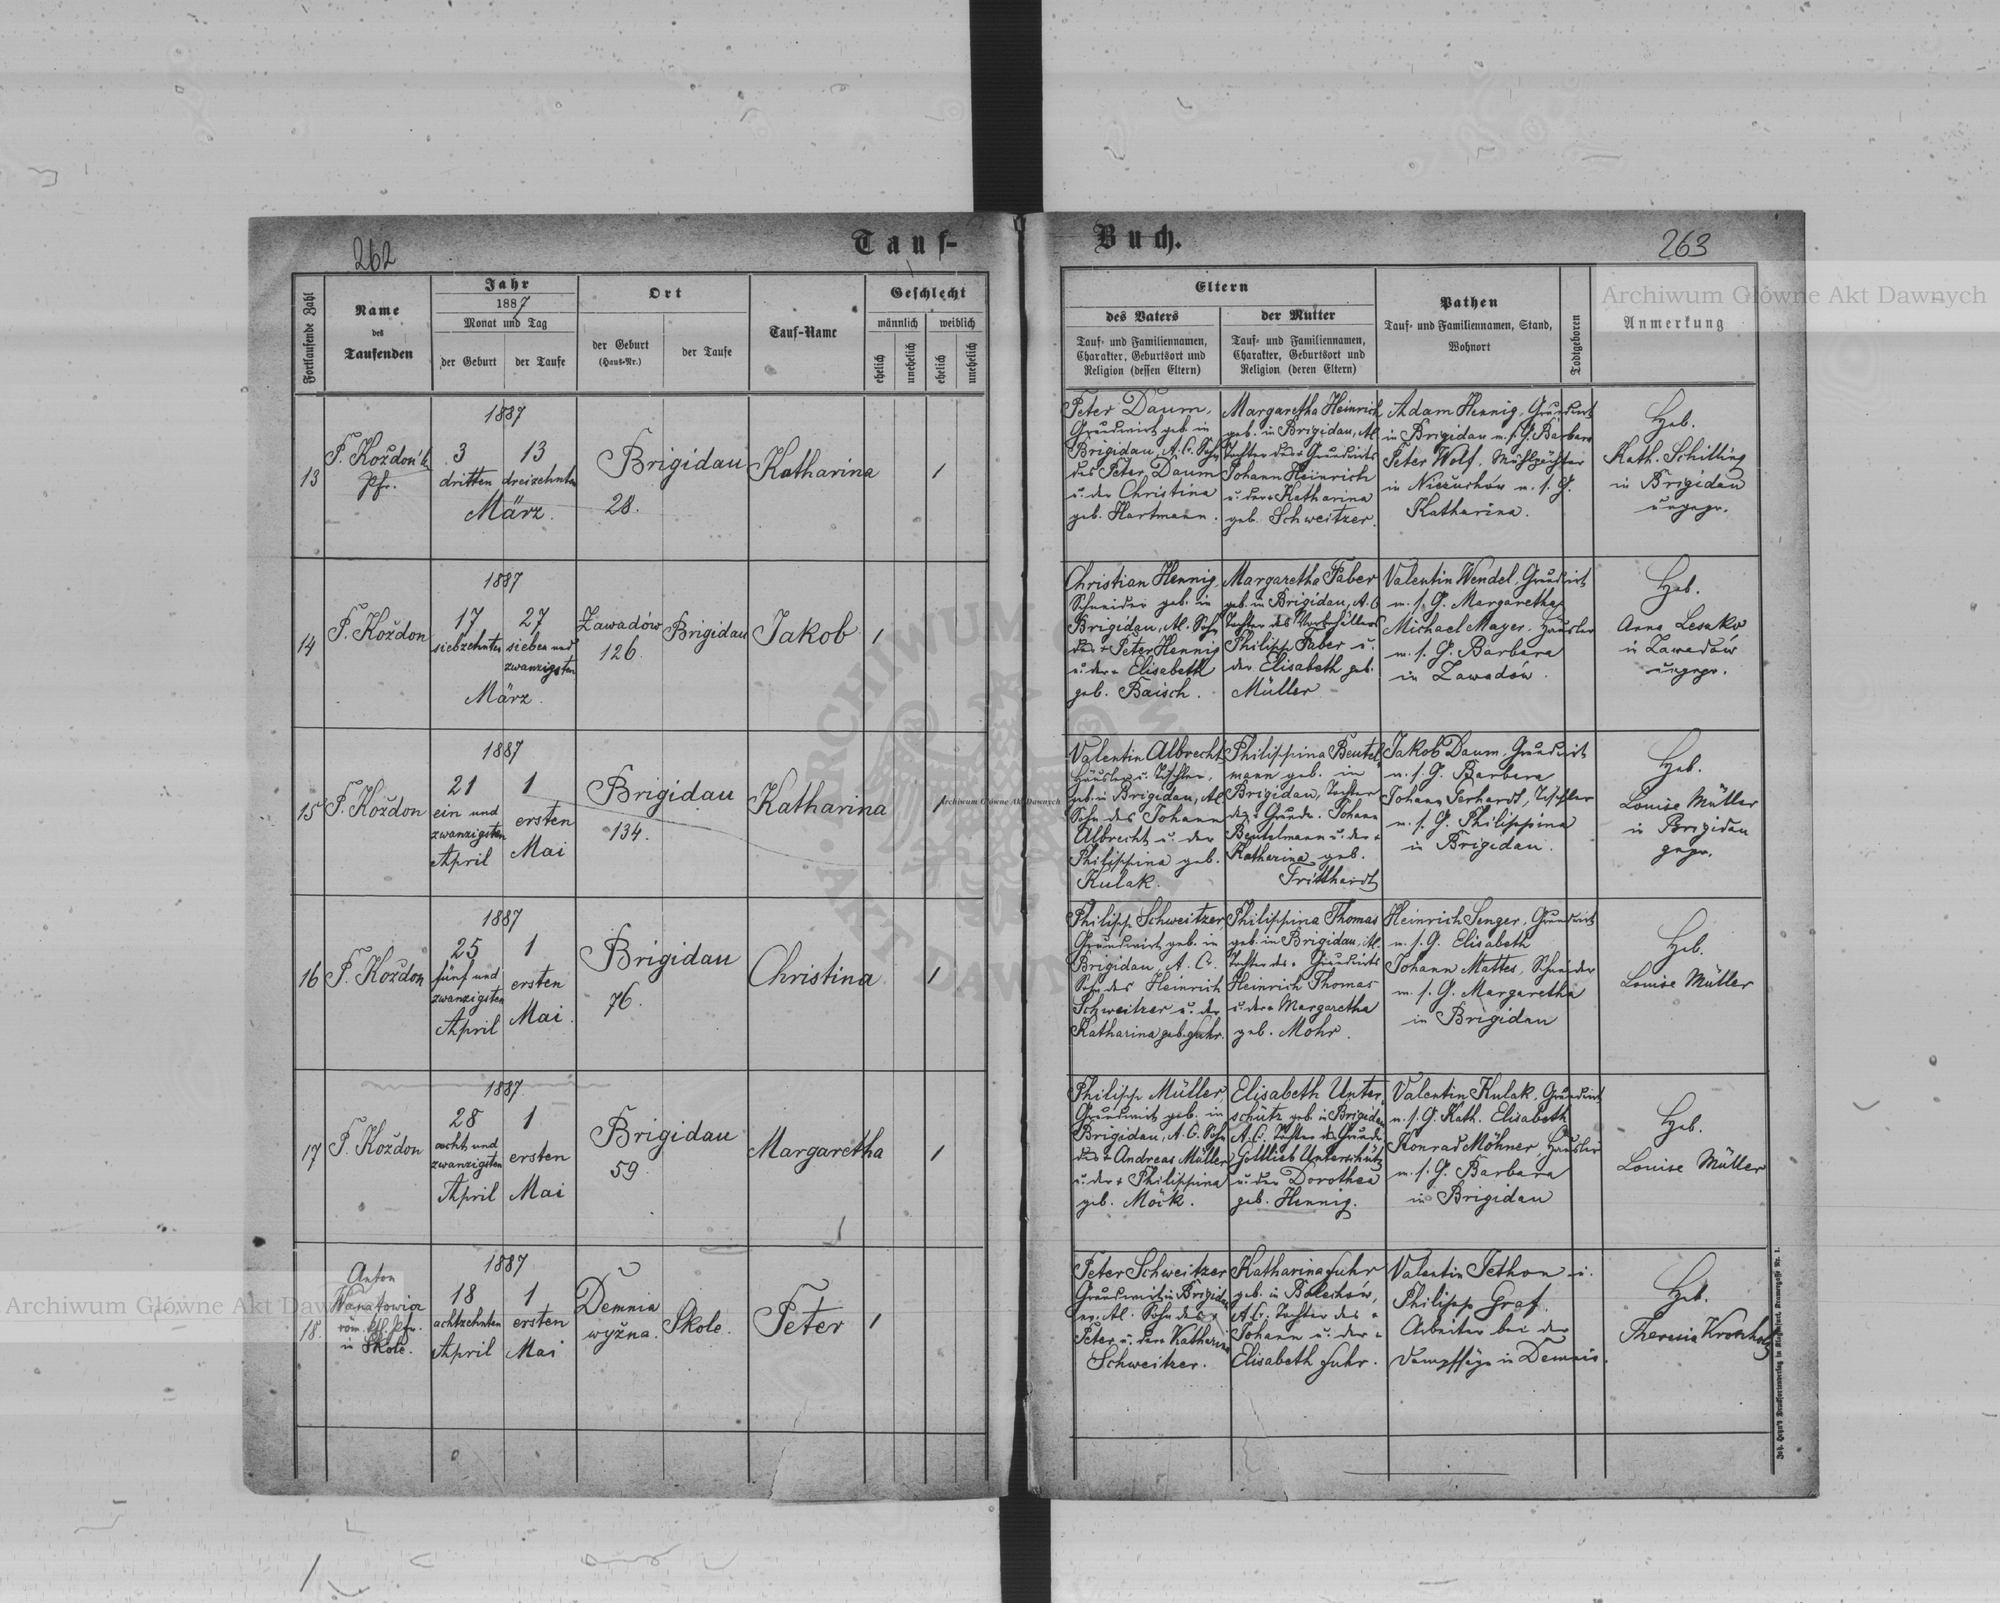 262
Tauf-
Buch.
263
Archiwum Główne Akt Dawnych
Fortlaufende Zahl
Name
des
Taufenden
Jahr
1887
Monat und Tag
der Geburt
der Taufe
Ort
der Geburt
(Haus-Nr.)
der Taufe
Tauf-Name
Geschlecht
männlich
weiblich
ehelich
unehelich
ehelich
unehelich
Eltern
des Vaters
Tauf- und Familiennamen,
Charakter, Geburtsort und
Religion (dessen Eltern)
der Mutter
Tauf- und Familiennamen,
Charakter, Geburtsort und
Religion (deren Eltern)
Pathen
Tauf- und Familiennamen, Stand,
Wohnort
Todtgeboren
Anmerkung
13
F. Koždon
Pfr.
1887
3
dritten
13
dreizehnten
März
Brigidau
28.
Katharina
1
Peter Daum,
Grundwirt geb. in
Brigidau, A. C. Sohn
des Peter Daum
u. der Christina
geb. Hartmann.
Margaretha Heinrich
geb. in Brigidau, Al.
Tochter des + Grundwirts
Johann Heinrich
u. der + Katharina
geb. Schweitzer.
Adam Hennig, Grundwirt
in Brigidau m. s. G. Barbara
Peter Wolf, Mühlpächter
in Niezuchów m. s. G.
Katharina.
Heb.
Kath. Schilling
in Brigidau
ungepr.
14
F. Koždon
1887
17
siebzehnten
27
sieben und
zwanzigsten
März.
Zawadów
126.
Brigidau
Jakob
1
Christian Hennig,
Schneider geb. in
Brigidau, Al. Sohn
des + Peter Hennig
u. der + Elisabeth
geb. Baisch.
Margaretha Faber
geb. in Brigidau, A. C.
Tochter des
Philipp Faber u.
der Elisabeth geb.
Müller
Valentin Wendel, Grundwirt
m. s. G. Margaretha
Michael Mayer, Häusler
m. s. G. Barbara
in Zawadów.
Heb.
Anna Leszko
in Zawadów
ungepr.
15
F. Koždon
1887
21
ein und
zwanzigsten
April
1
ersten
Mai
Brigidau
134.
Katharina
1
Valentin Albrecht,
Häusler u. Tischler,
geb. in Brigidau, Al.
Sohn des Johann
Albrecht u. der
Philippina geb.
Kulak.
Philippina Beutel-
mann geb. in
Brigidau, Tochter
des + Grundw. Johann
Beutelmann u. der +
Katharina geb.
Fritthardt
Jakob Daum, Grundwirt
m. s. G. Barbara
Johann Gerhardt, Tischler
m. s. G. Philippina
in Brigidau.
Heb.
Louise Müller
in Brigidau
gepr.
Archiwum Główne Akt Dawnych
16
F. Koždon
1887
25
fünf und
zwanzigsten
April
1
ersten
Mai.
Brigidau
76.
Christina
1
Philipp Schweitzer,
Grundwirt geb. in
Brigidau, A. C.
Sohn des Heinrich
Schweitzer u. der
Katharina geb. Fuhr.
Philippina Thomas
geb. in Brigidau, Al.
Tochter des + Grundwirts
Heinrich Thomas
u. der + Margaretha
geb. Mohr.
Heinrich Senger, Grundwirt
m. s. G. Elisabeth
Johann Mattes, Schneider
m. s. G. Margaretha
in Brigidau
Heb.
Louise Müller
17
F. Koždon
1887
28
acht und
zwanzigsten
April
1
ersten
Mai
Brigidau
59.
Margaretha
1
Philipp Müller,
Grundwirt geb. in
Brigidau, A. C. Sohn
des + Andreas Müller
u. der + Philippina
geb. Möck.
Elisabeth Unter-
schütz geb. in Brigidau
A. C. Tochter des Grundw.
Gottlieb Unterschütz
u. der Dorothea
geb. Hennig.
Valentin Kulak, Grundwirt
m. s. G. Kath. Elisabeth
Konrad Möhner, Häusler
m. s. G. Barbara
in Brigidau
Heb.
Louise Müller
18.
Anton
Wanatowicz
röm. kth. Pfr.
in Skole.
1887
18
achtzehnten
April
1
ersten
Mai
Demnia
wyžna.
Skole.
Peter
1
Peter Schweitzer
Grundwirt in Brigidau
Al. Sohn des +
Peter u. der + Katharina
Schweitzer.
Katharina Fuhr
geb. in Bolechów,
A. C. Tochter des +
Johann u. der +
Elisabeth Fuhr.
Valentin Jethon u.
Philipp Graf.
Arbeiter bei der
Dampfsäge in Demnia.
Heb.
Theresia Kronholz
Archiwum Główne Akt Dawnych